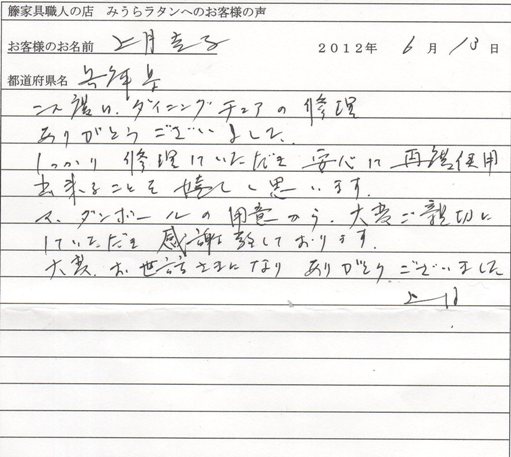 籐家具職人の店 みうらラタンへのお客様の声
お客様のお名前 上月圭子 2012年 6月13日
都道府県名 兵庫県
この度は、ダイニングチェアの修理
ありがとうございました。
しっかり修理していただき安心して再度使用
出来ることを嬉しく思います。
又、ダンボールの用意から、大変ご親切に
していただき感謝致しております。
大変、お世話さまになりありがとうございました
上月